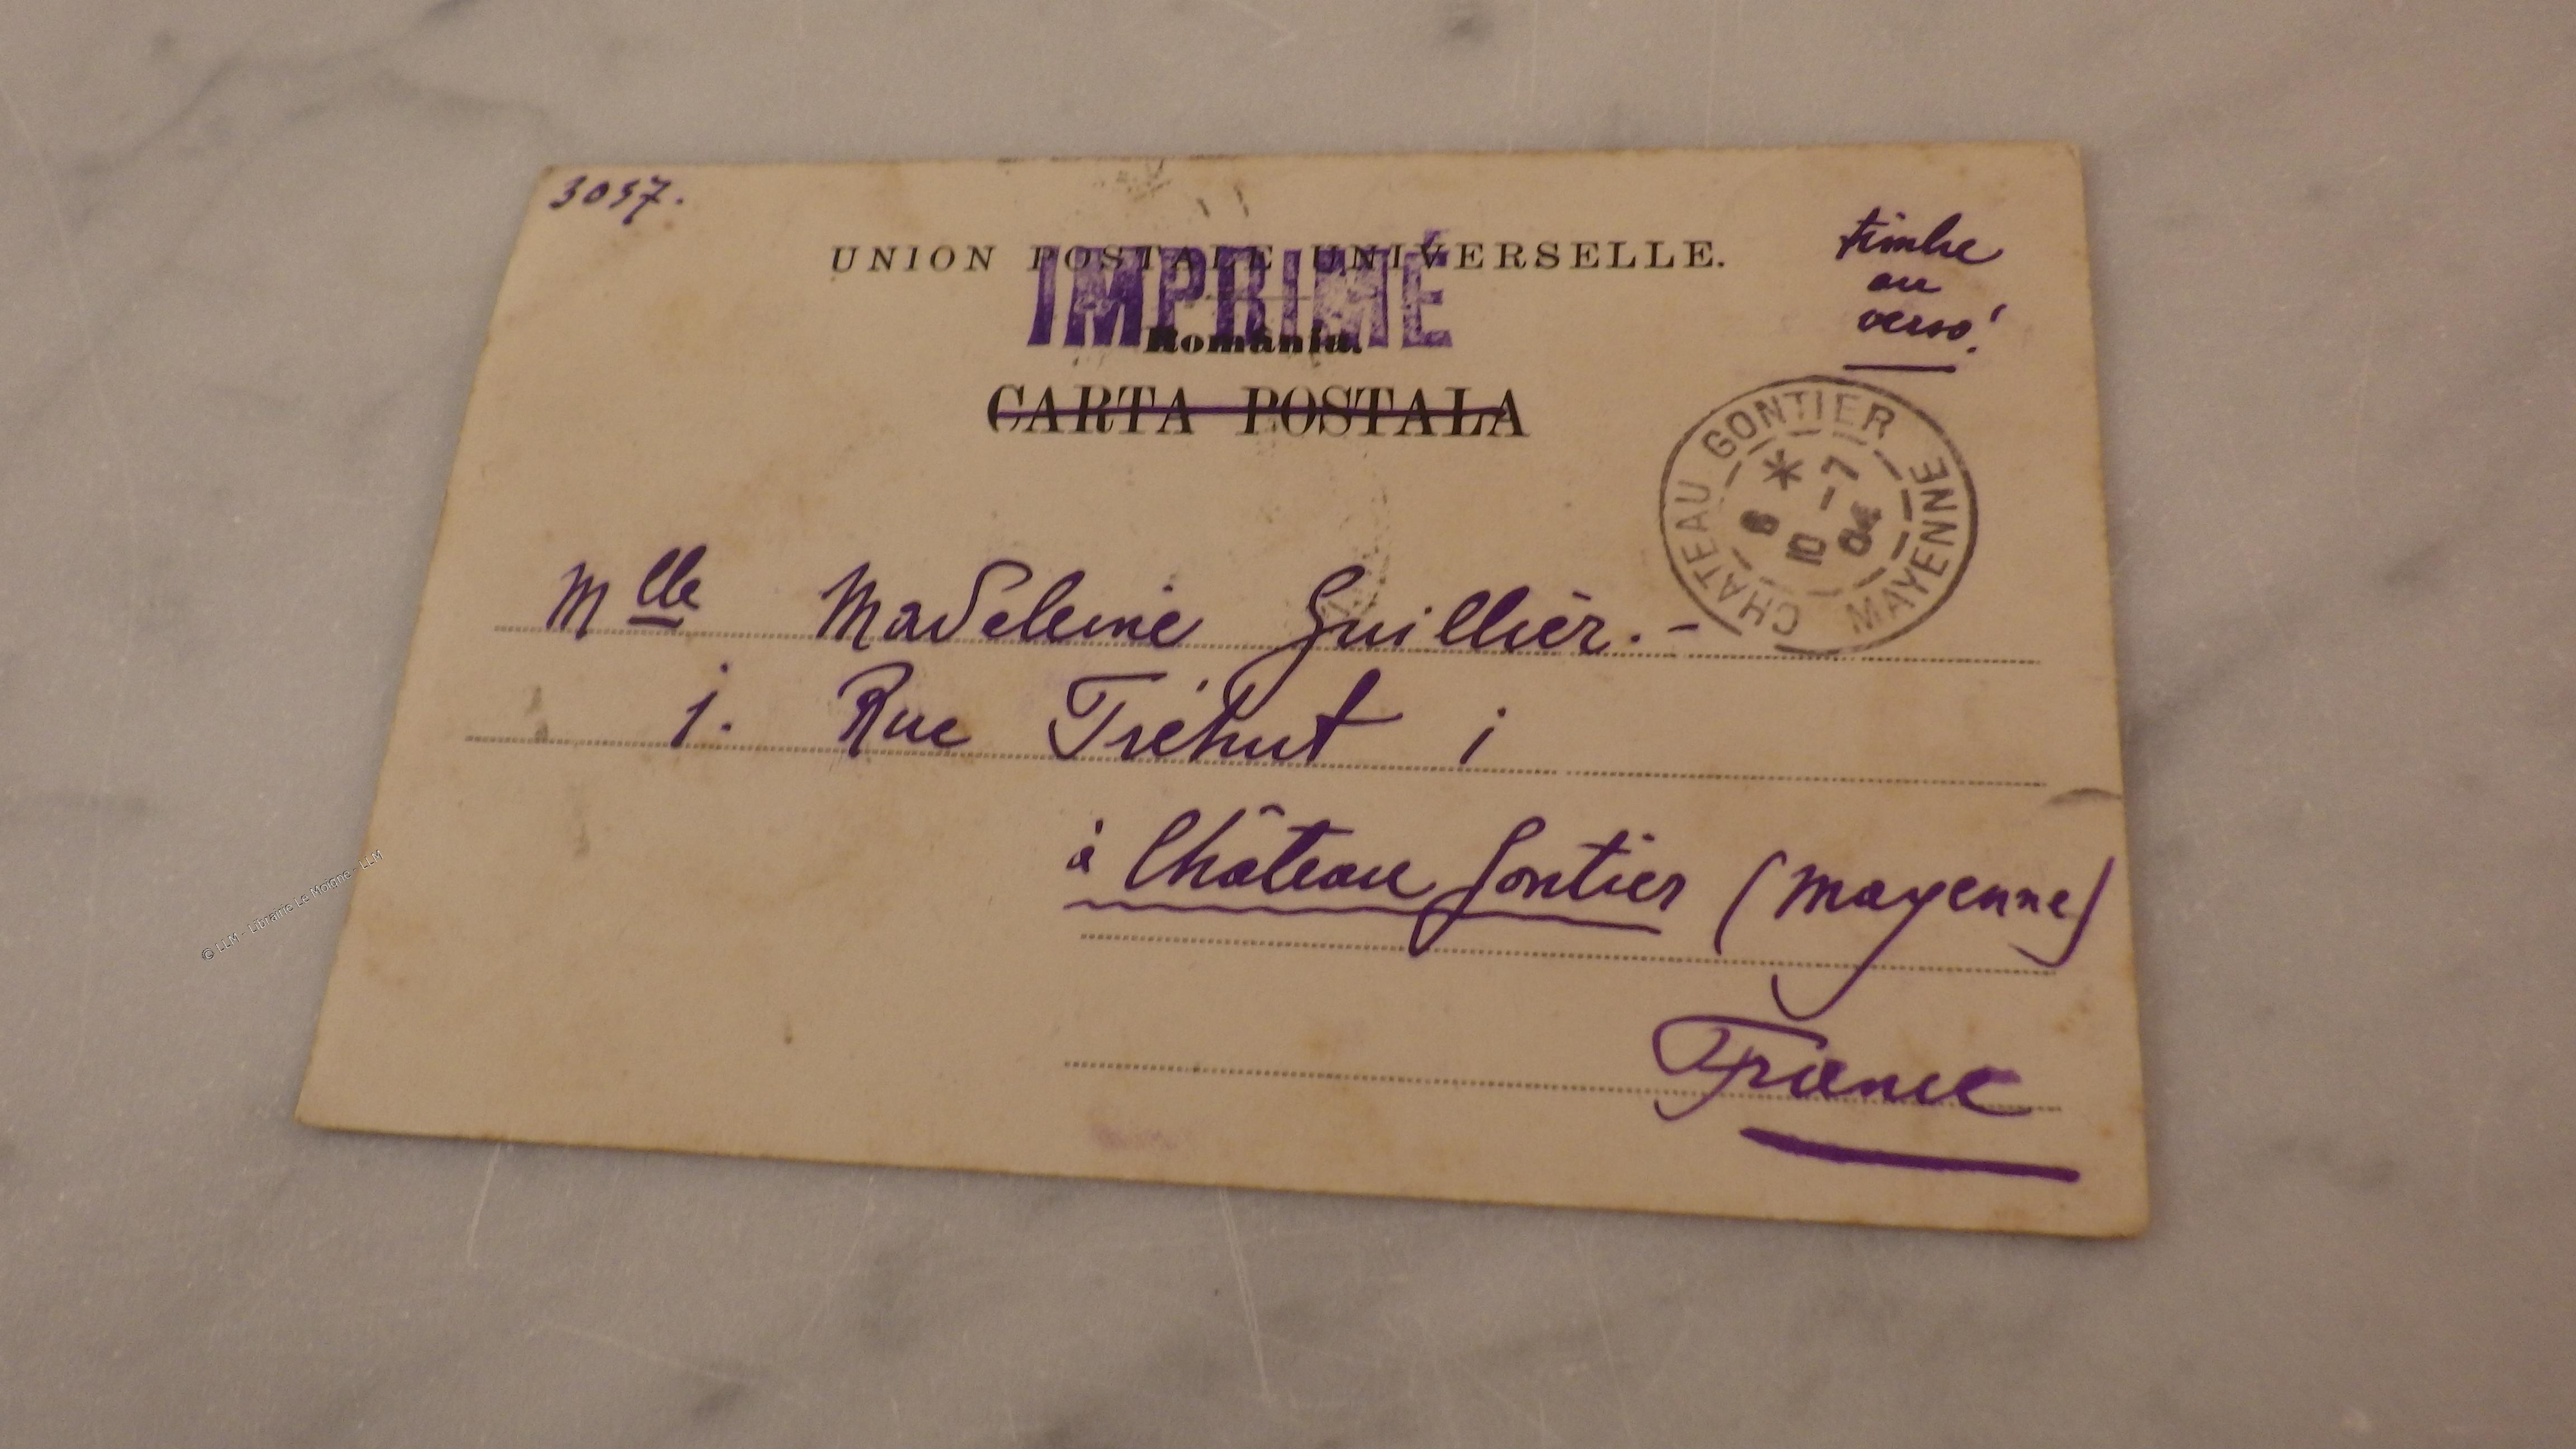 3057.
UNION POSTALE UNIVERSELLE.
IMPRIMÉ
România.
CARTA POSTALA
timbre
au
verso!
CHATEAU GONTIER
MAYENNE
6
10 -7
04
Mlle Madeleine Guillier. -
1. Rue Tréhut 1
à Château Gontier (Mayenne)
France
© LLM - Librairie Le Moigne - LLM